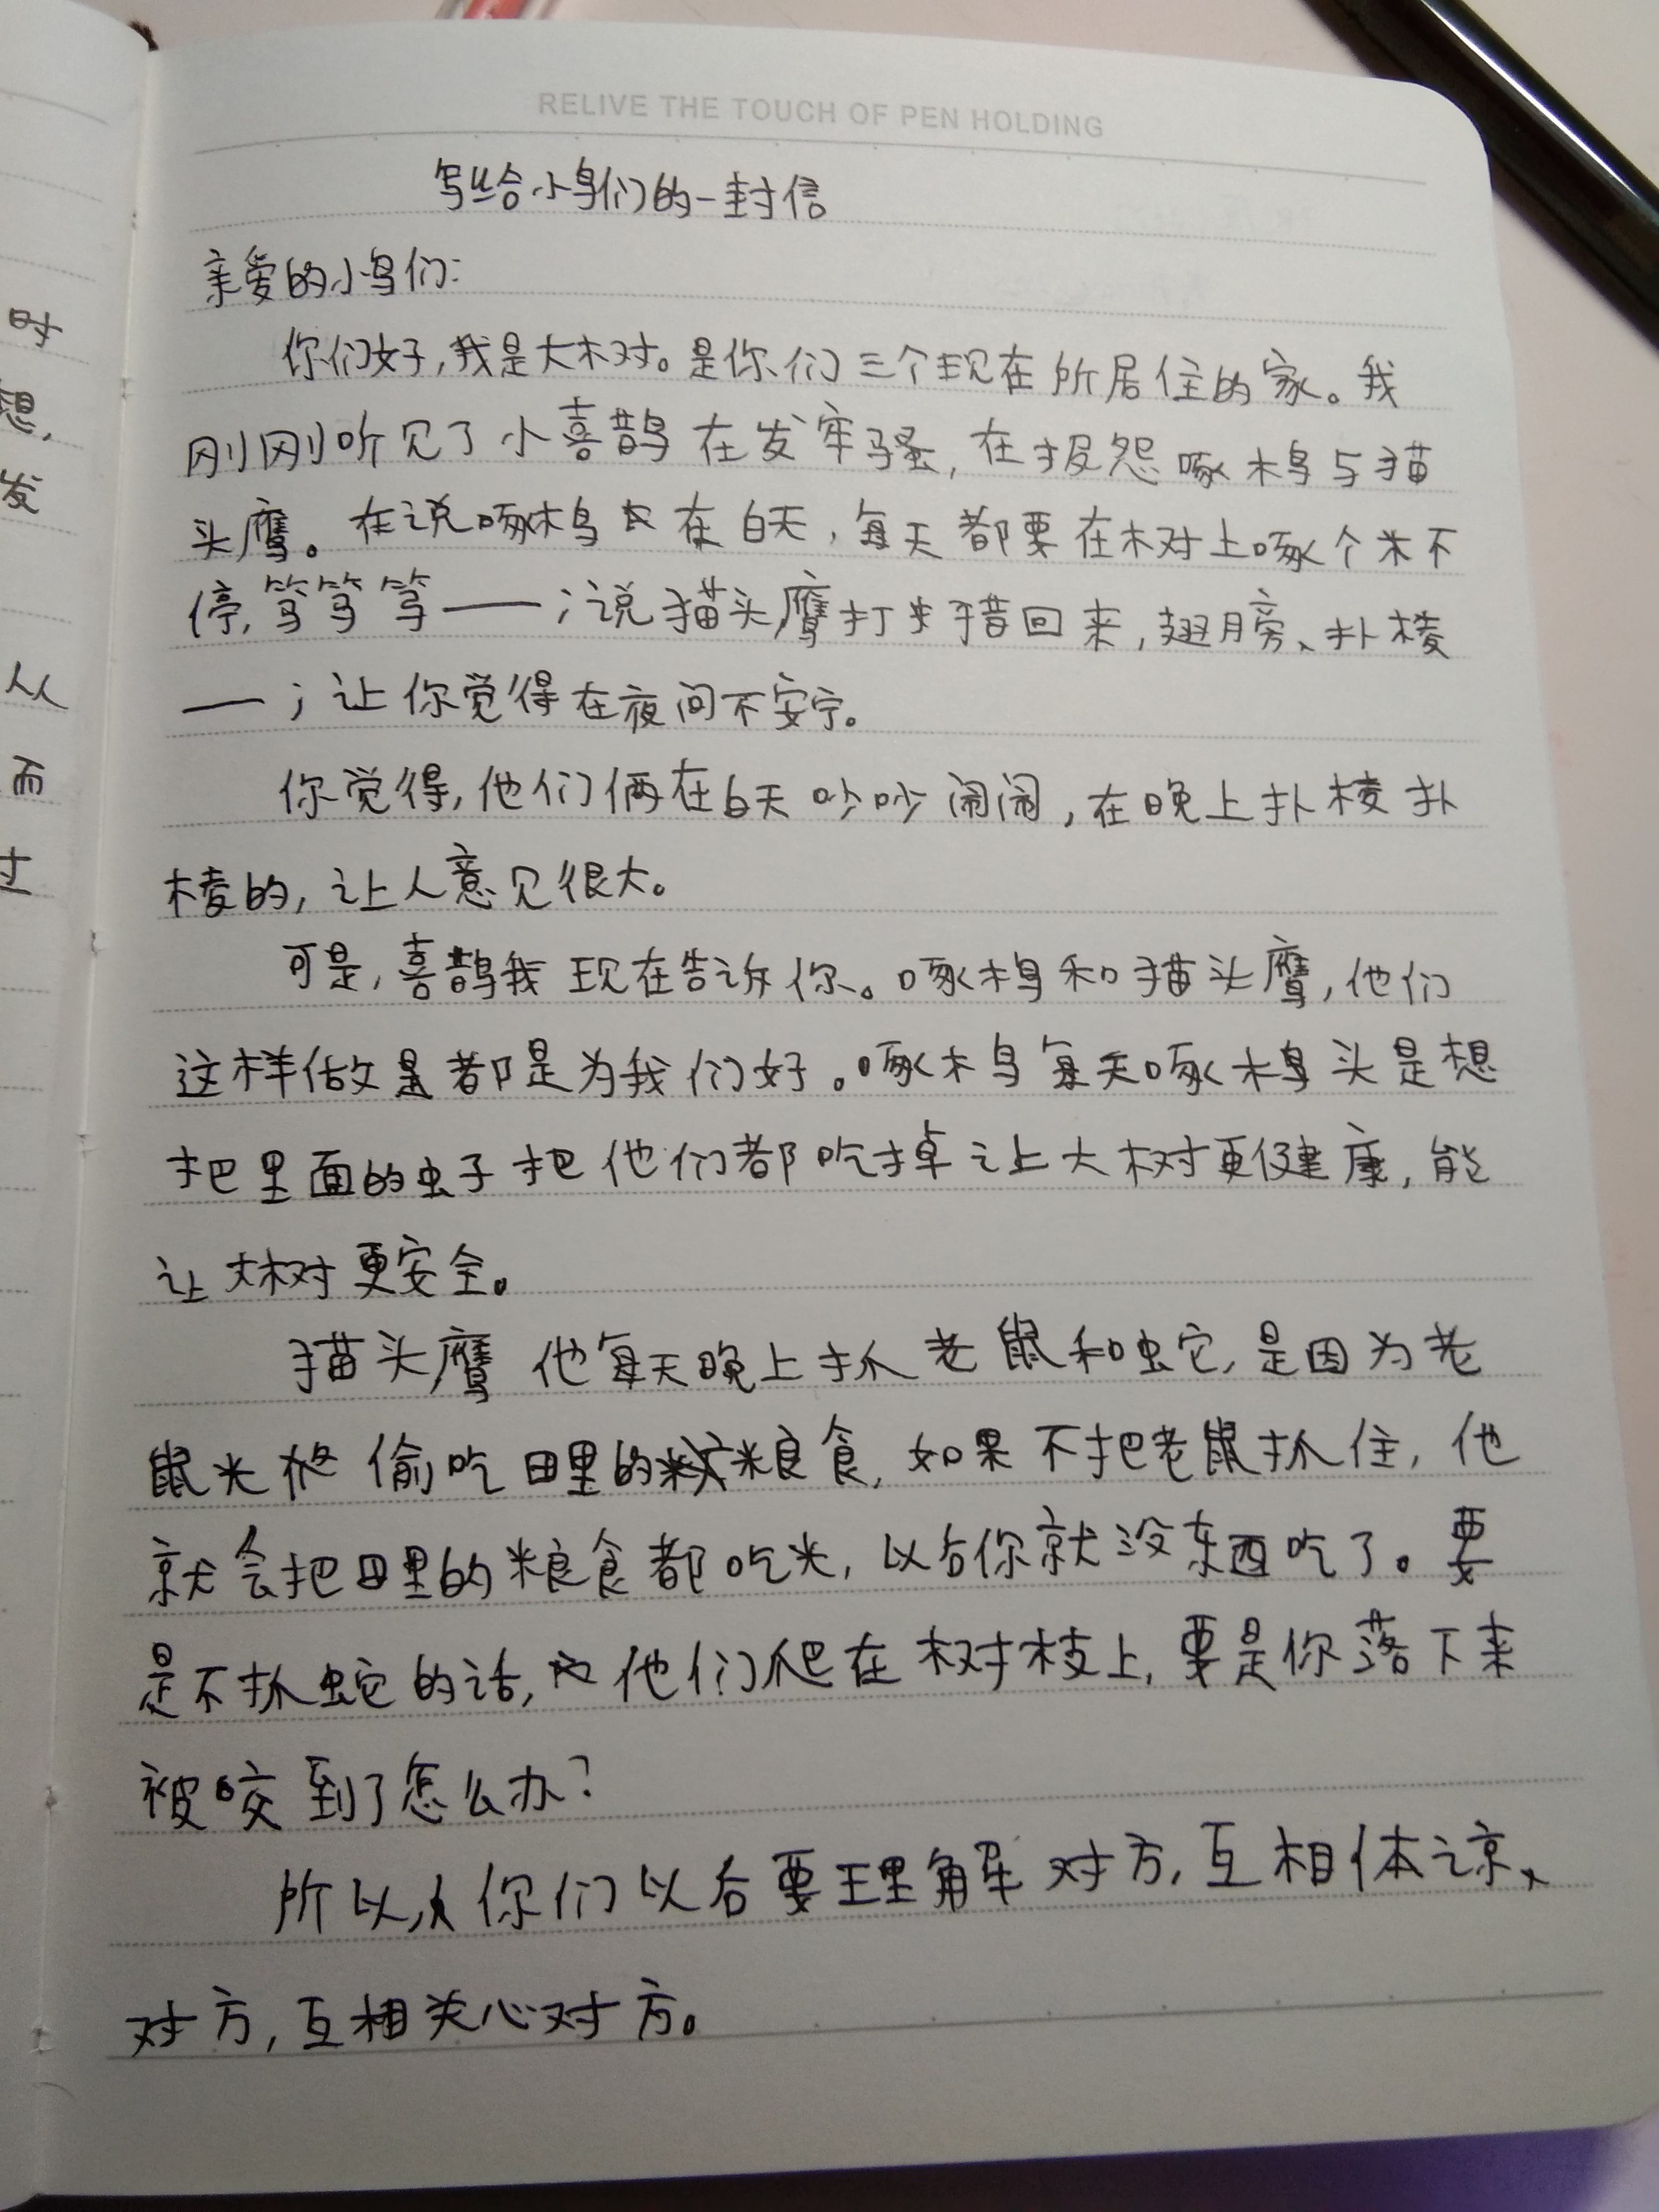 RELIVE THE TOUCH OF PEN HOLDING
写给小鸟们的一封信
亲爱的小鸟们:
你们好,我是大树。是你们三个现在所居住的家。我
刚刚听见了小喜鹊在发牢骚,在报怨啄木鸟与猫
头鹰。在说啄木鸟在白天,每天都要在树上啄个米不
停,笃笃笃——;说猫头鹰打猎回来,翅膀、扑棱
——;让你觉得在夜间不安宁。
你觉得,他们俩在白天吵吵闹闹,在晚上扑棱扑
棱的,让人意见很大。
可是,喜鹊我现在告诉你。啄木鸟和猫头鹰,他们
这样做都是为我们好。啄木鸟每天啄木鸟头是想
把里面的虫子把他们都吃掉让大树更健康,能
让大树更安全。
猫头鹰他每天晚上抓老鼠和蛇,是因为老
鼠偷吃田里的粮食,如果不把老鼠抓住,他
就会把田里的粮食都吃光,以后你就没东西吃了。要
是不抓蛇的话,他们爬在树枝上,要是你落下来
被咬到了怎么办?
所以,你们以后要理解对方,互相体谅、
对方,互相关心对方。
时
想,
发
从
而